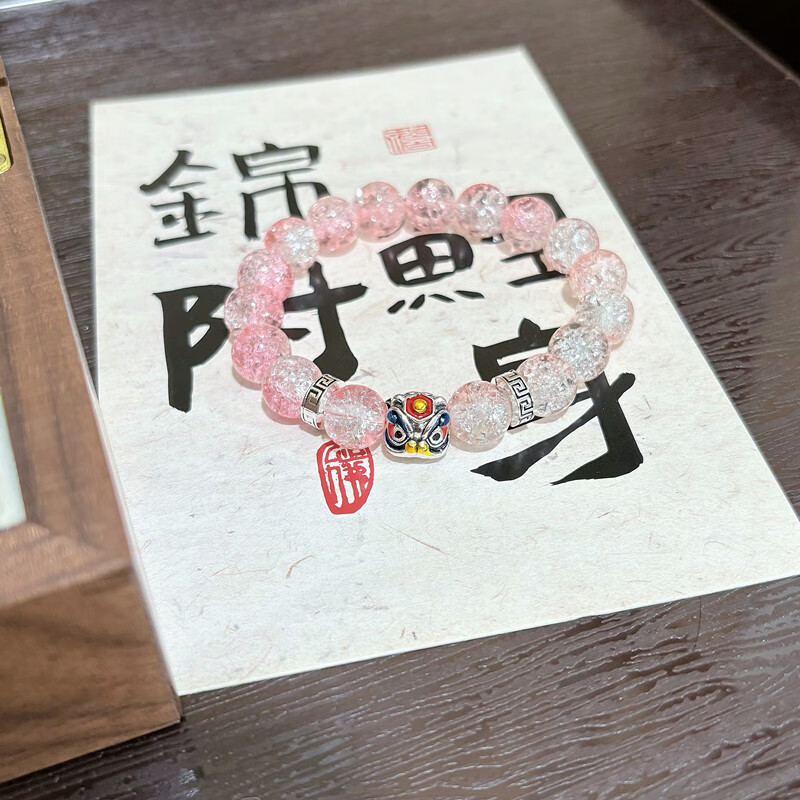 錦鯉
附身